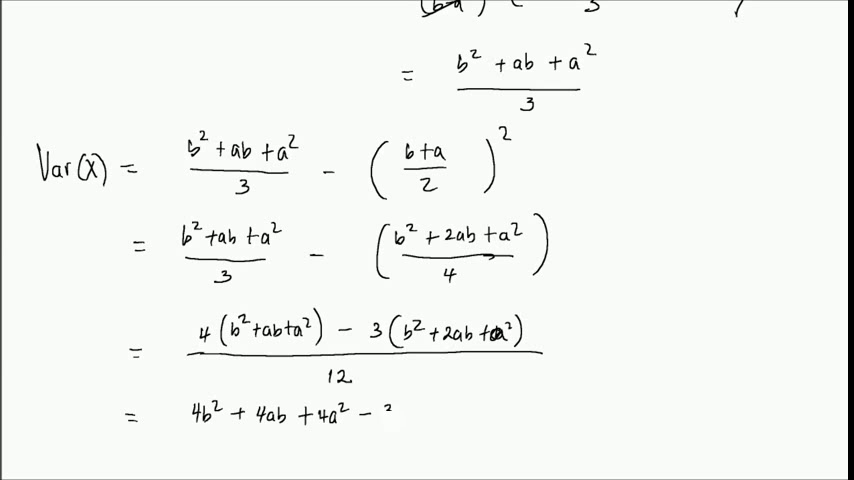 (b-a) ( 3
= b² + ab + a² / 3
Var(X) = b² + ab + a² / 3 - ( b+a / 2 )²
= b² + ab + a² / 3 - ( b² + 2ab + a² / 4 )
= 4(b² + ab + a²) - 3(b² + 2ab + a²) / 12
= 4b² + 4ab + 4a² -